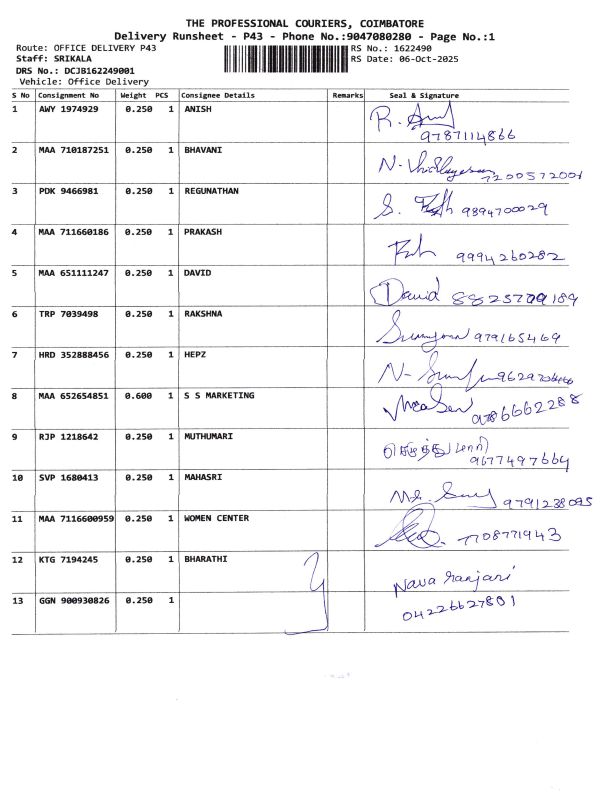 THE PROFESSIONAL COURIERS, COIMBATORE
Delivery Runsheet - P43 - Phone No.:9047080280 - Page No.:1
Route: OFFICE DELIVERY P43 RS No.: 1622490
Staff: SRIKALA RS Date: 06-Oct-2025
DRS No.: DCJB162249001
Vehicle: Office Delivery
S No Consignment No Weight PCS Consignee Details Remarks Seal & Signature
1 AWY 1974929 0.250 1 ANISH R.
9787114866
2 MAA 710187251 0.250 1 BHAVANI N-
7200572001
3 PDK 9466981 0.250 1 REGUNATHAN S. 9894700029
4 MAA 711660186 0.250 1 PRAKASH 9994260282
5 MAA 651111247 0.250 1 DAVID David 8825709189
6 TRP 7039498 0.250 1 RAKSHNA 979165469
7 HRD 352888456 0.250 1 HEPZ N-
8 MAA 652654851 0.600 1 S S MARKETING 9786662288
9 RJP 1218642 0.250 1 MUTHUMARI
9677497664
10 SVP 1680413 0.250 1 MAHASRI 9791238095
11 MAA 7116600959 0.250 1 WOMEN CENTER 7708771943
12 KTG 7194245 0.250 1 BHARATHI Nava ranjani
13 GGN 900930826 0.250 1 04226627801